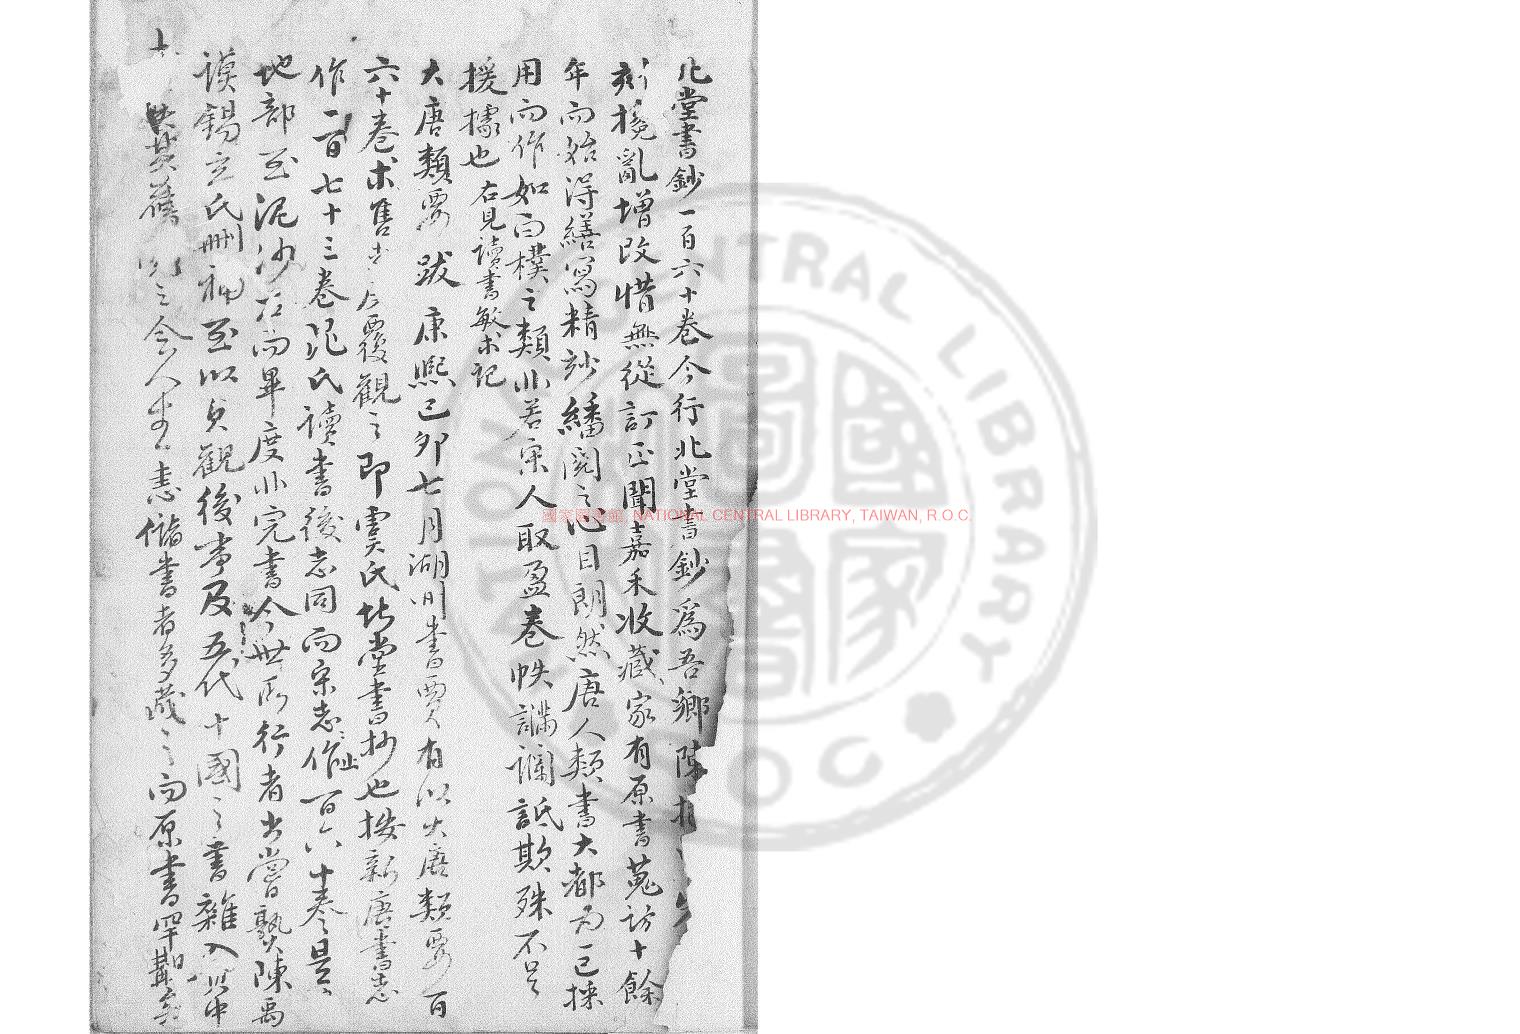 北堂書鈔一百六十卷今行北堂書鈔為吾鄉陳
刻攙亂增改惜無從訂正聞嘉禾收藏家有原書蒐訪十餘
年而始得繕寫精鈔繙閱之心目朗然唐人類書大都為已採
用而作如白樸之類非若宋人取盈卷帙讕詆欺殊不足
援據也右見讀書敏求記
大唐類要跋康熙己卯七月湖州書賈有以大唐類要百
六十卷求售者反覆觀之即虞氏北堂書抄也按新唐書志
作一百七十三卷晁氏讀書後志同而宋志作百六十卷是
地部至泥沙石而畢度非完書今世所行者出常熟陳禹
謨錫玄氏刪補至以貞觀後事及五代十國之書雜入其中
盡失其舊之今人幸書儲書者多藏之而原書罕覯矣
國家圖書館, NATIONAL CENTRAL LIBRARY, TAIWAN, R.O.C.
NATIONAL CENTRAL LIBRARY
ROC